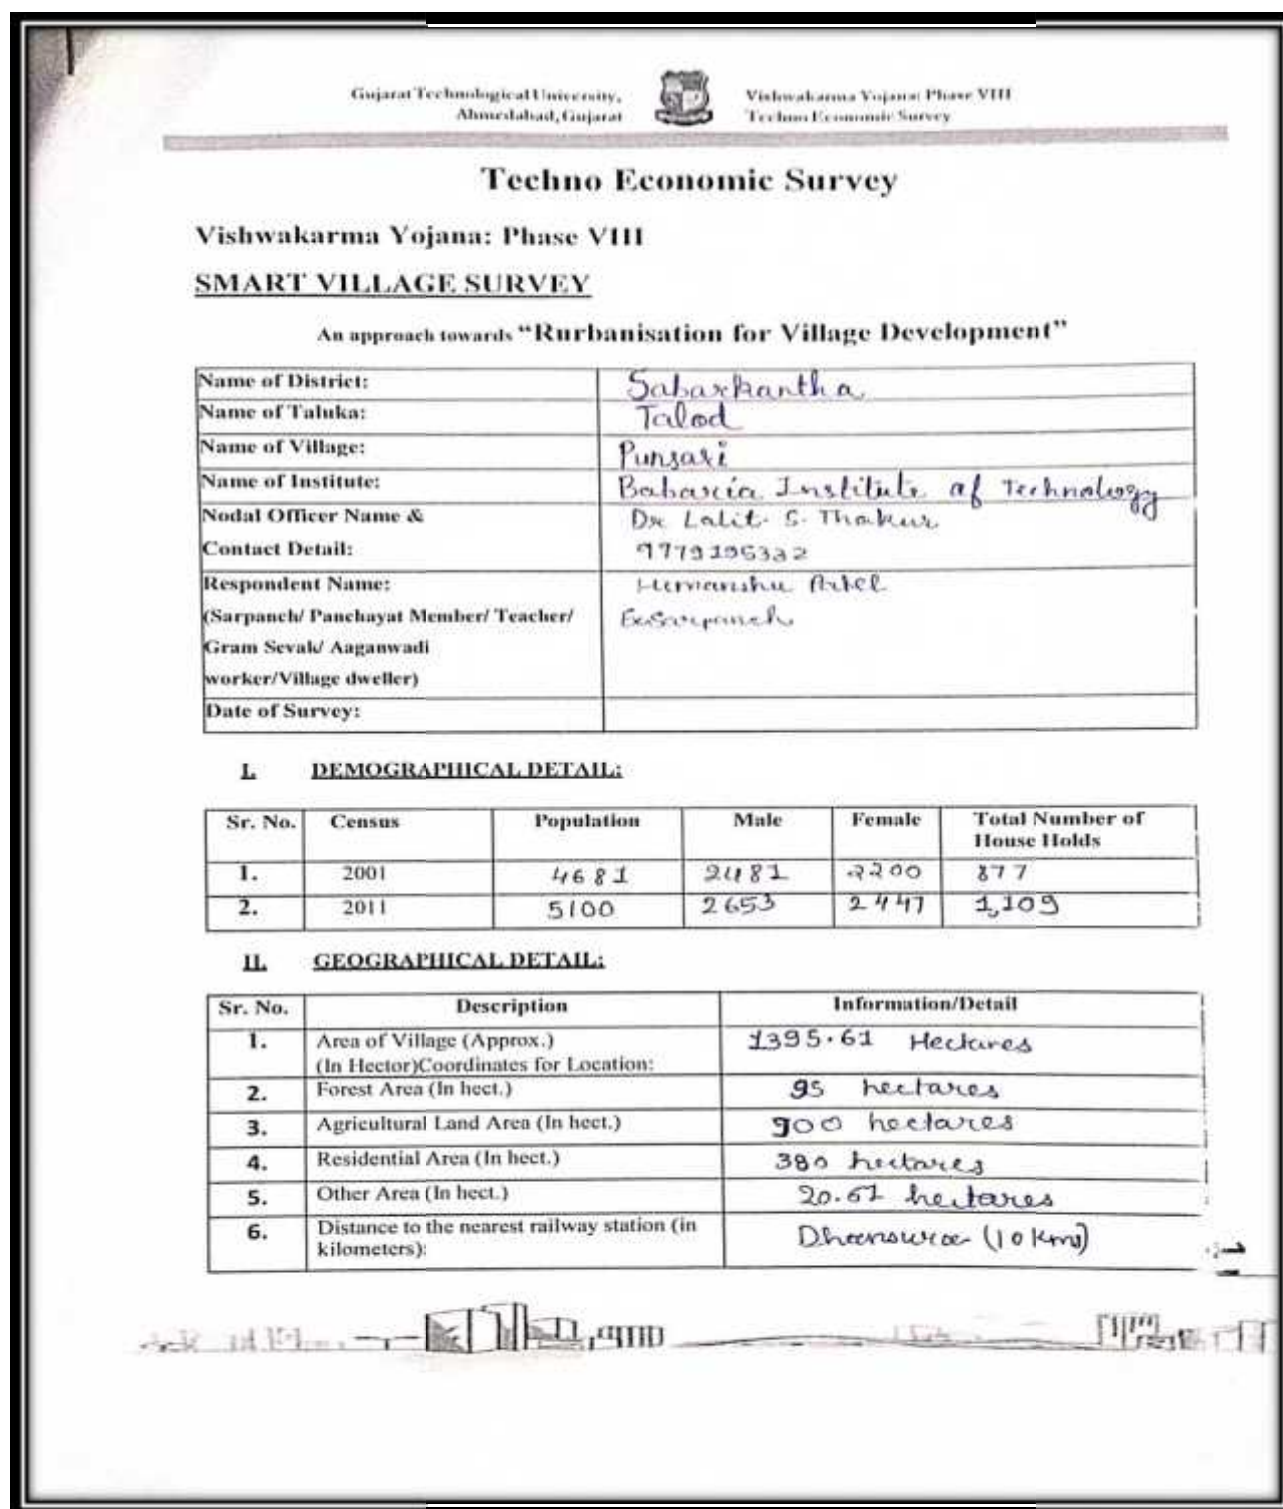 Gujarat Technological University,
Ahmedabad, Gujarat
Vishwakarma Yojana: Phase VIII
Techno Economic Survey
Techno Economic Survey
Vishwakarma Yojana: Phase VIII
SMART VILLAGE SURVEY
An approach towards "Rurbanisation for Village Development"
Name of District: Sabarkantha
Name of Taluka: Talod
Name of Village: Punsari
Name of Institute: Babaria Institute of Technology
Nodal Officer Name & Dr Lalit. S. Thakur
Contact Detail:
Respondent Name: Himanshu Patel
(Sarpanch/ Panchayat Member/ Teacher/ ExSarpanch
Gram Sevak/ Aaganwadi
worker/Village dweller)
Date of Survey:
I. DEMOGRAPHICAL DETAIL:
Sr. No. Census Population Male Female Total Number of
House Holds
1. 2001 4681 2481 2200 877
2. 2011 5100 2653 2447 1,109
II. GEOGRAPHICAL DETAIL:
Sr. No. Description Information/Detail
1. Area of Village (Approx.) 1395.61 Hectares
(In Hector)Coordinates for Location:
2. Forest Area (In hect.) 95 hectares
3. Agricultural Land Area (In hect.) 900 hectares
4. Residential Area (In hect.) 380 hectares
5. Other Area (In hect.) 20.61 hectares
6. Distance to the nearest railway station (in Dhansura (10 Kms)
kilometers):